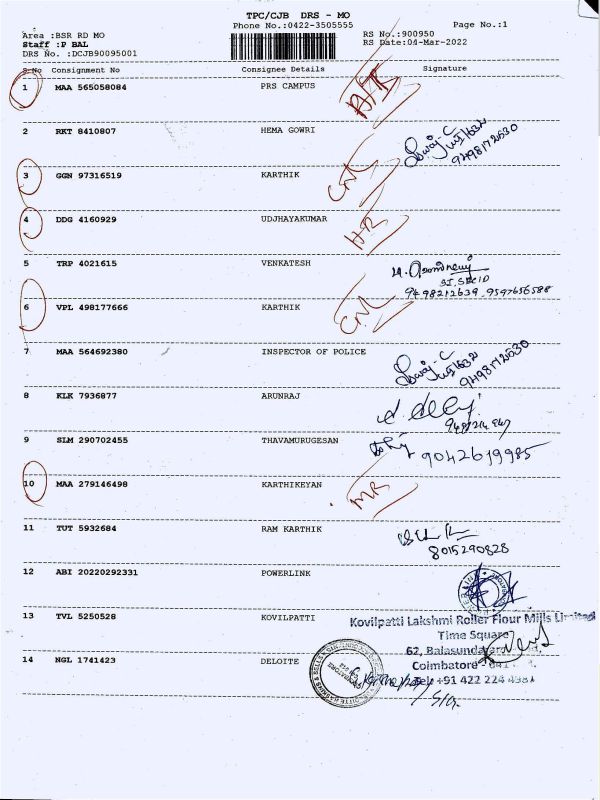 TPC/CJB DRS - MO
Phone No.:0422-3505555
Page No.:1
Area :BSR RD MO
Staff :P BAL
DRS No. :DCJB90095001
RS No.:900950
RS Date:04-Mar-2022
S.No Consignment No Consignee Details Signature
1 MAA 565058084 PRS CAMPUS
2 RKT 8410807 HEMA GOWRI
9498172630
3 GGN 97316519 KARTHIK CNL
4 DDG 4160929 UDJHAYAKUMAR
5 TRP 4021615 VENKATESH
9498212639, 9597656588
6 VPL 498177666 KARTHIK CNL
7 MAA 564692380 INSPECTOR OF POLICE
9498172630
8 KLK 7936877 ARUNRAJ
9 SLM 290702455 THAVAMURUGESAN
9042619985
10 MAA 279146498 KARTHIKEYAN MR
11 TUT 5932684 RAM KARTHIK
8015290828
12 ABI 20220292331 POWERLINK
13 TVL 5250528 KOVILPATTI
Kovilpatti Lakshmi Roller Flour Mills Limited
Time Square
62, Balasundaram
Coimbatore - 641
Tel: +91 422 224 4981
14 NGL 1741423 DELOITE